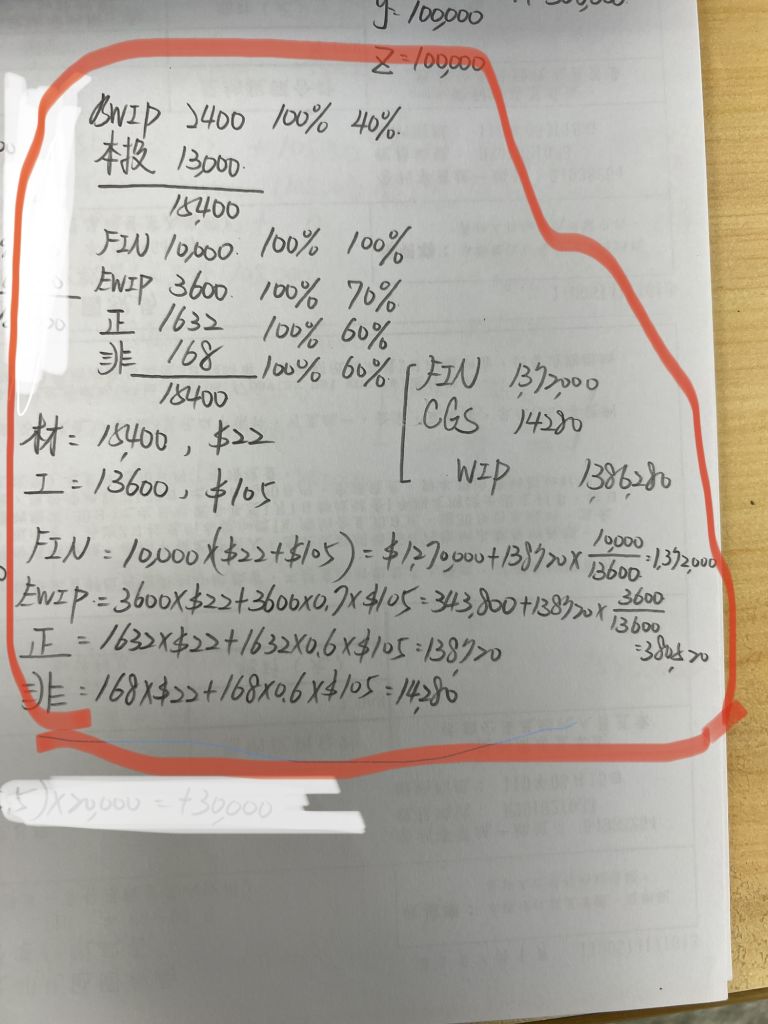 y=100,000
Z=100,000
BWIP 2400 100% 40%
本投 13,000
15,400
FIN 10,000 100% 100%
EWIP 3600 100% 70%
正 1632 100% 60%
非 168 100% 60%
15400
FIN 1,372,000
CGS 14280
WIP 1,386,280
材= 15,400 , $22
工=13600 , $105
FIN = 10,000×($22+$105) = $1,270,000+138720× 10,000/13600 =1,372,000
EWIP=3600×$22+3600×0.7×$105=343,800+138720× 3600/13600
=380,520
正 = 1632×$22+1632×0.6×$105=138,720
非 = 168×$22+168×0.6×$105=14,280
.5)×20,000=+30,000